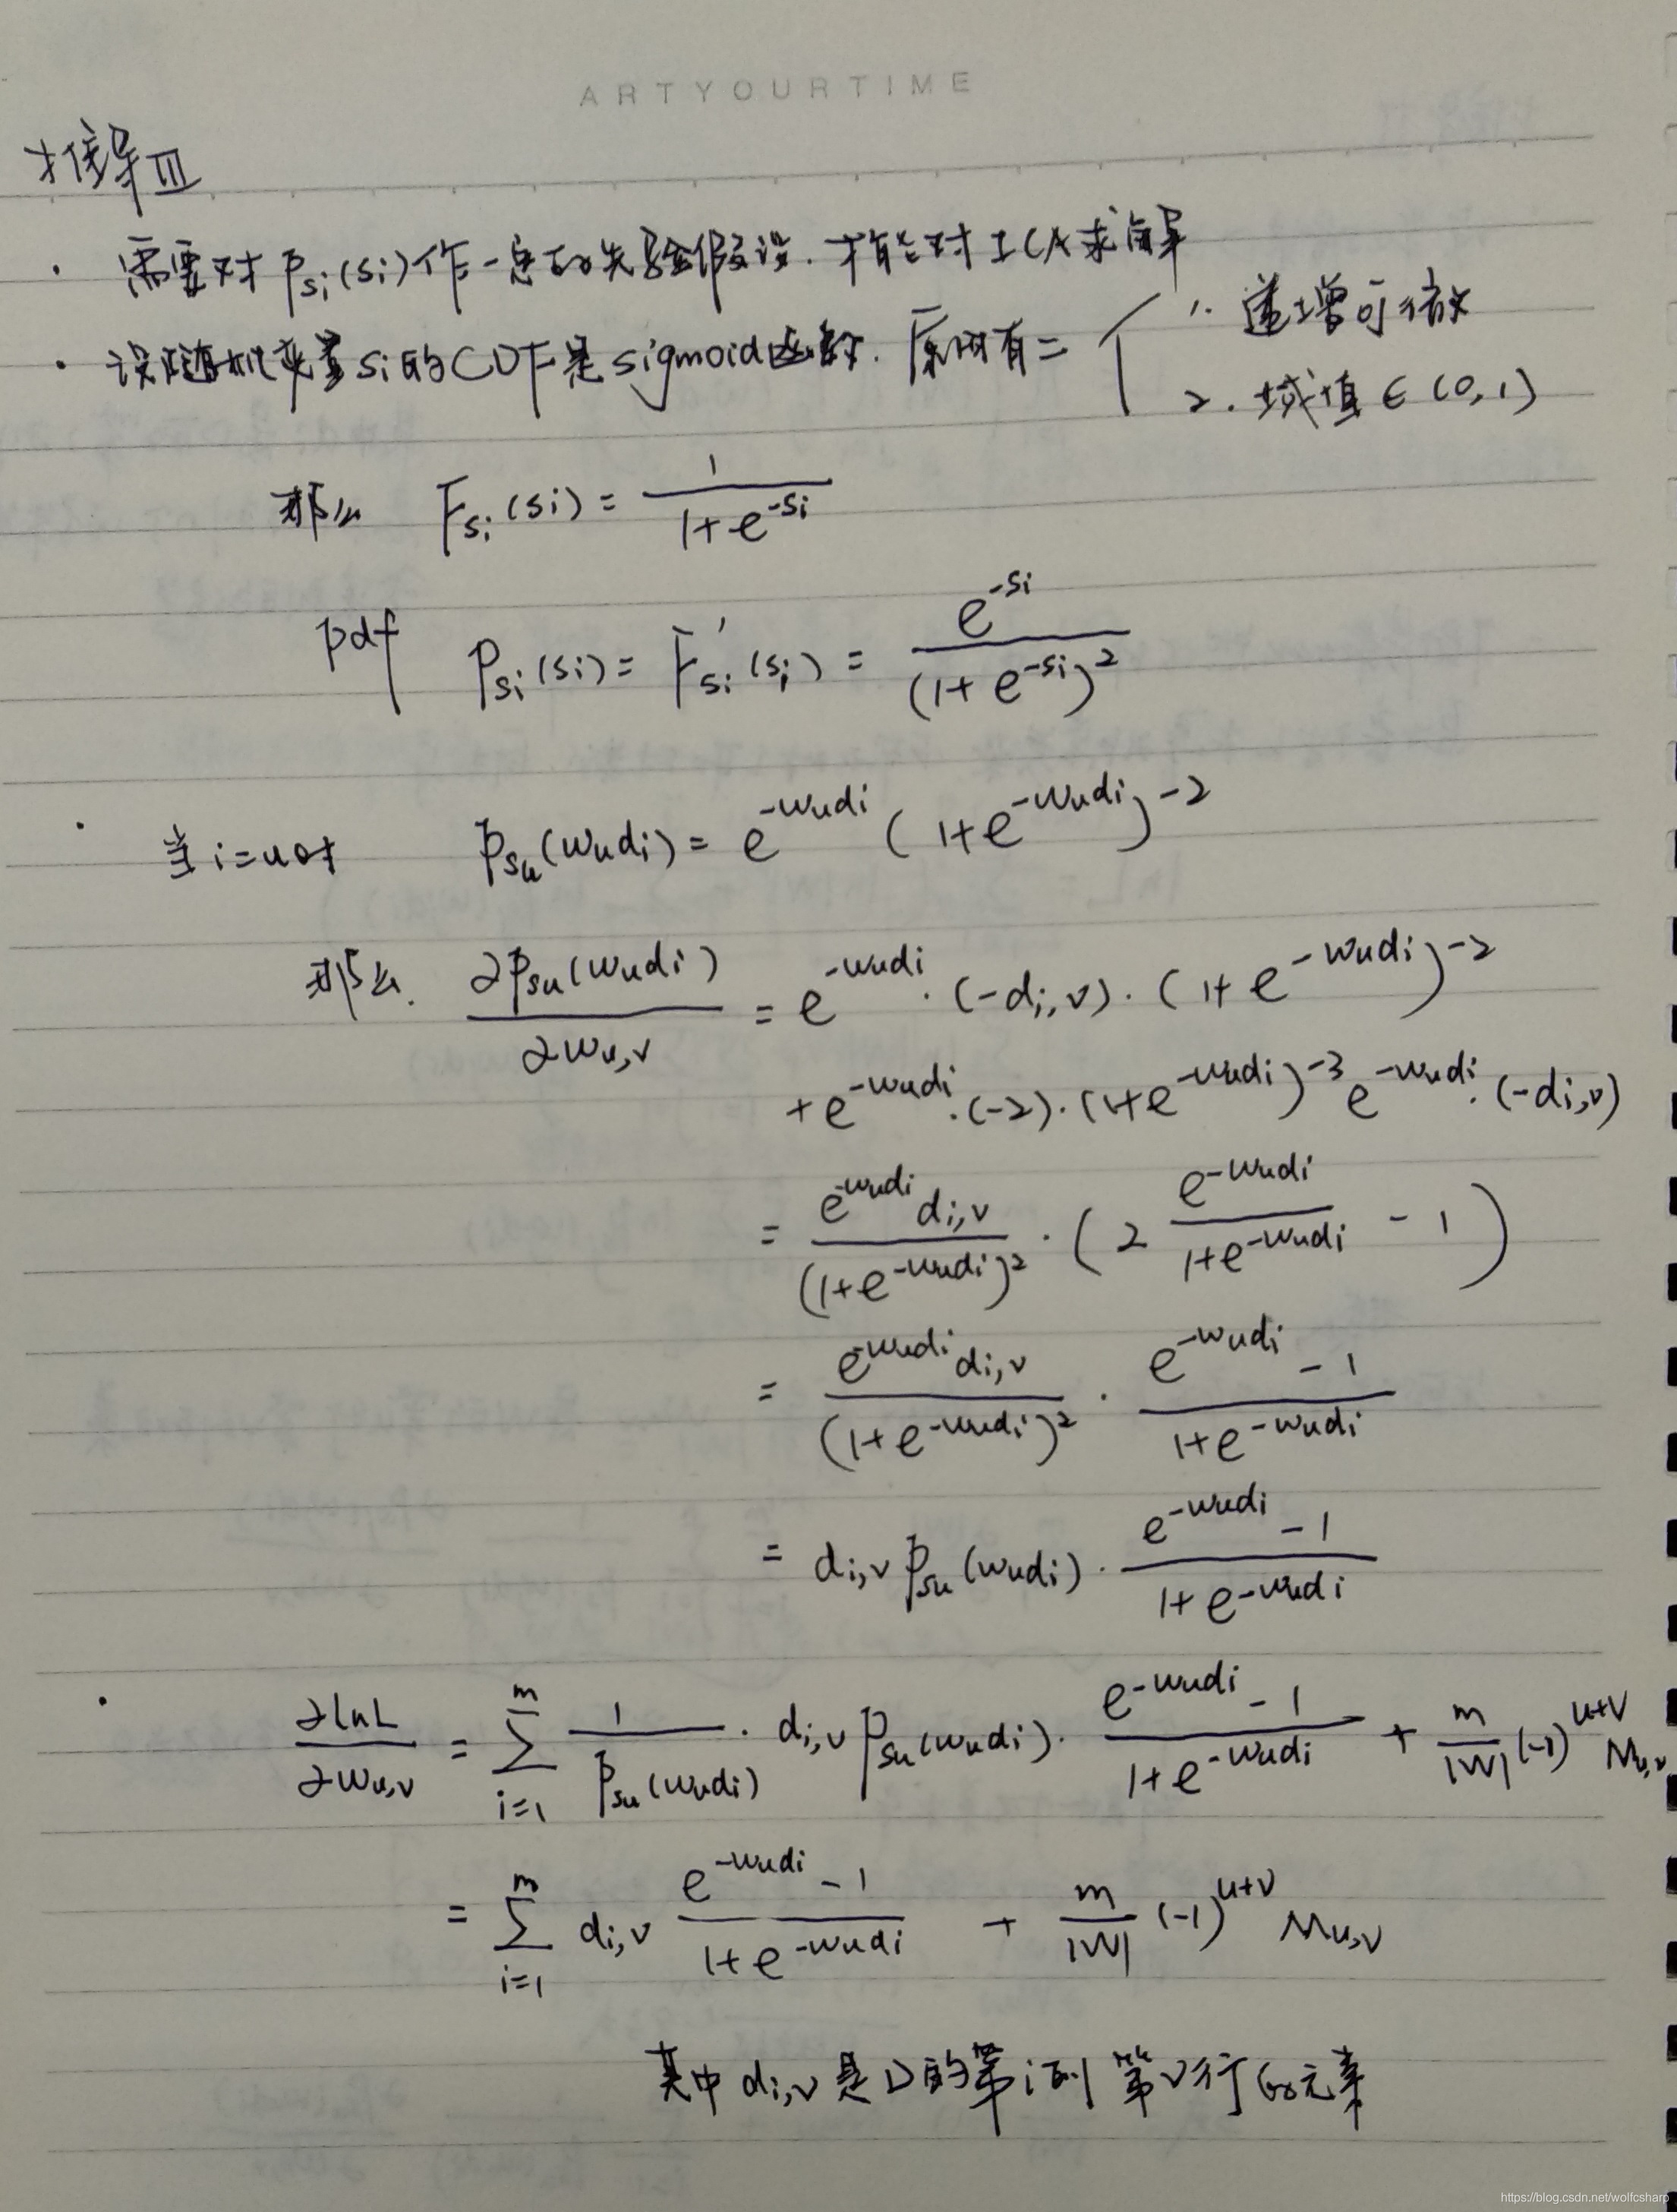 ARTYOURTIME
推导III
· 需要对 p_{s_i}(s_i) 作一定的先验假设. 才能对ICA求解
· 设随机变量 s_i 的CDF是sigmoid函数. 原因有二 { 1. 递增可微
2. 域值 ∈ (0,1)
那么 F_{s_i}(s_i) = \frac{1}{1+e^{-s_i}}
pdf p_{s_i}(s_i) = F'_{s_i}(s_i) = \frac{e^{-s_i}}{(1+e^{-s_i})^2}
· 当 i=u 时 p_{s_u}(w_u d_i) = e^{-w_u d_i} (1+e^{-w_u d_i})^{-2}
那么. \frac{∂p_{s_u}(w_u d_i)}{∂w_{u,v}} = e^{-w_u d_i} · (-d_{i,v}) · (1+e^{-w_u d_i})^{-2}
+ e^{-w_u d_i} · (-2) · (1+e^{-w_u d_i})^{-3} e^{-w_u d_i} · (-d_{i,v})
= \frac{e^{-w_u d_i} d_{i,v}}{(1+e^{-w_u d_i})^2} · (2 \frac{e^{-w_u d_i}}{1+e^{-w_u d_i}} - 1)
= \frac{e^{-w_u d_i} d_{i,v}}{(1+e^{-w_u d_i})^2} · \frac{e^{-w_u d_i} - 1}{1+e^{-w_u d_i}}
= d_{i,v} p_{s_u}(w_u d_i) · \frac{e^{-w_u d_i} - 1}{1+e^{-w_u d_i}}
· \frac{∂lnL}{∂w_{u,v}} = \sum_{i=1}^{m} \frac{1}{p_{s_u}(w_u d_i)} · d_{i,v} p_{s_u}(w_u d_i) · \frac{e^{-w_u d_i} - 1}{1+e^{-w_u d_i}} + \frac{m}{|W|} (-1)^{u+v} M_{u,v}
= \sum_{i=1}^{m} d_{i,v} \frac{e^{-w_u d_i} - 1}{1+e^{-w_u d_i}} + \frac{m}{|W|} (-1)^{u+v} M_{u,v}
其中 d_{i,v} 是D的第i列 第v行的元素
https://blog.csdn.net/wolfcsharp